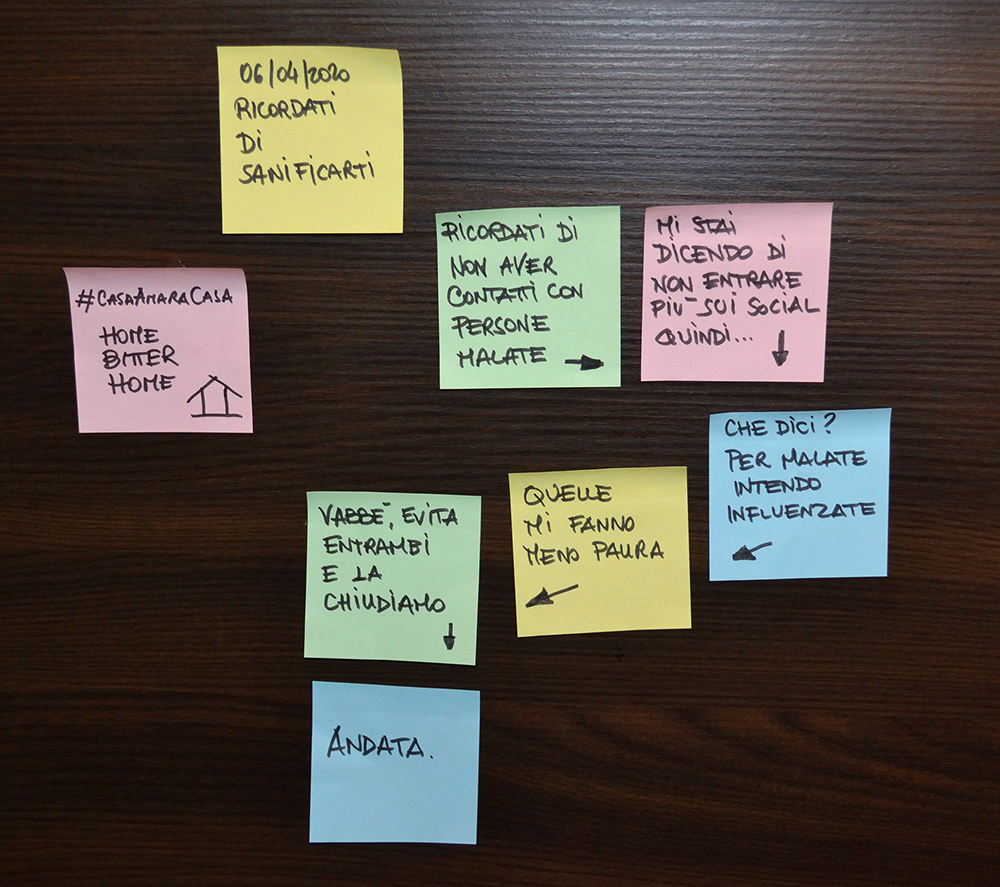 06/04/2020
RICORDATI
DI
SANIFICARTI
#CASAAMARACASA
HOME
BITTER
HOME
RICORDATI DI
NON AVER
CONTATTI CON
PERSONE
MALATE
MI STAI
DICENDO DI
NON ENTRARE
PIU' SUI SOCIAL
QUINDI...
CHE DICI?
PER MALATE
INTENDO
INFLUENZATE
QUELLE
MI FANNO
MENO PAURA
VABBE', EVITA
ENTRAMBI
E LA
CHIUDIAMO
ANDATA.